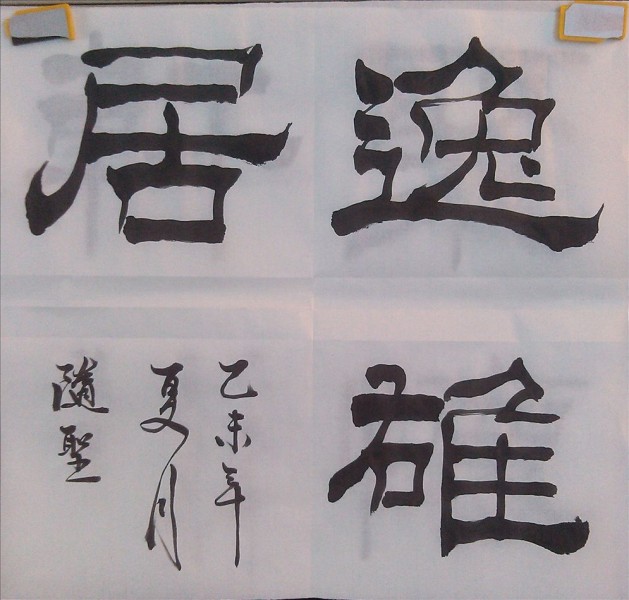 逸雄
居
乙未年
夏月
隨聖